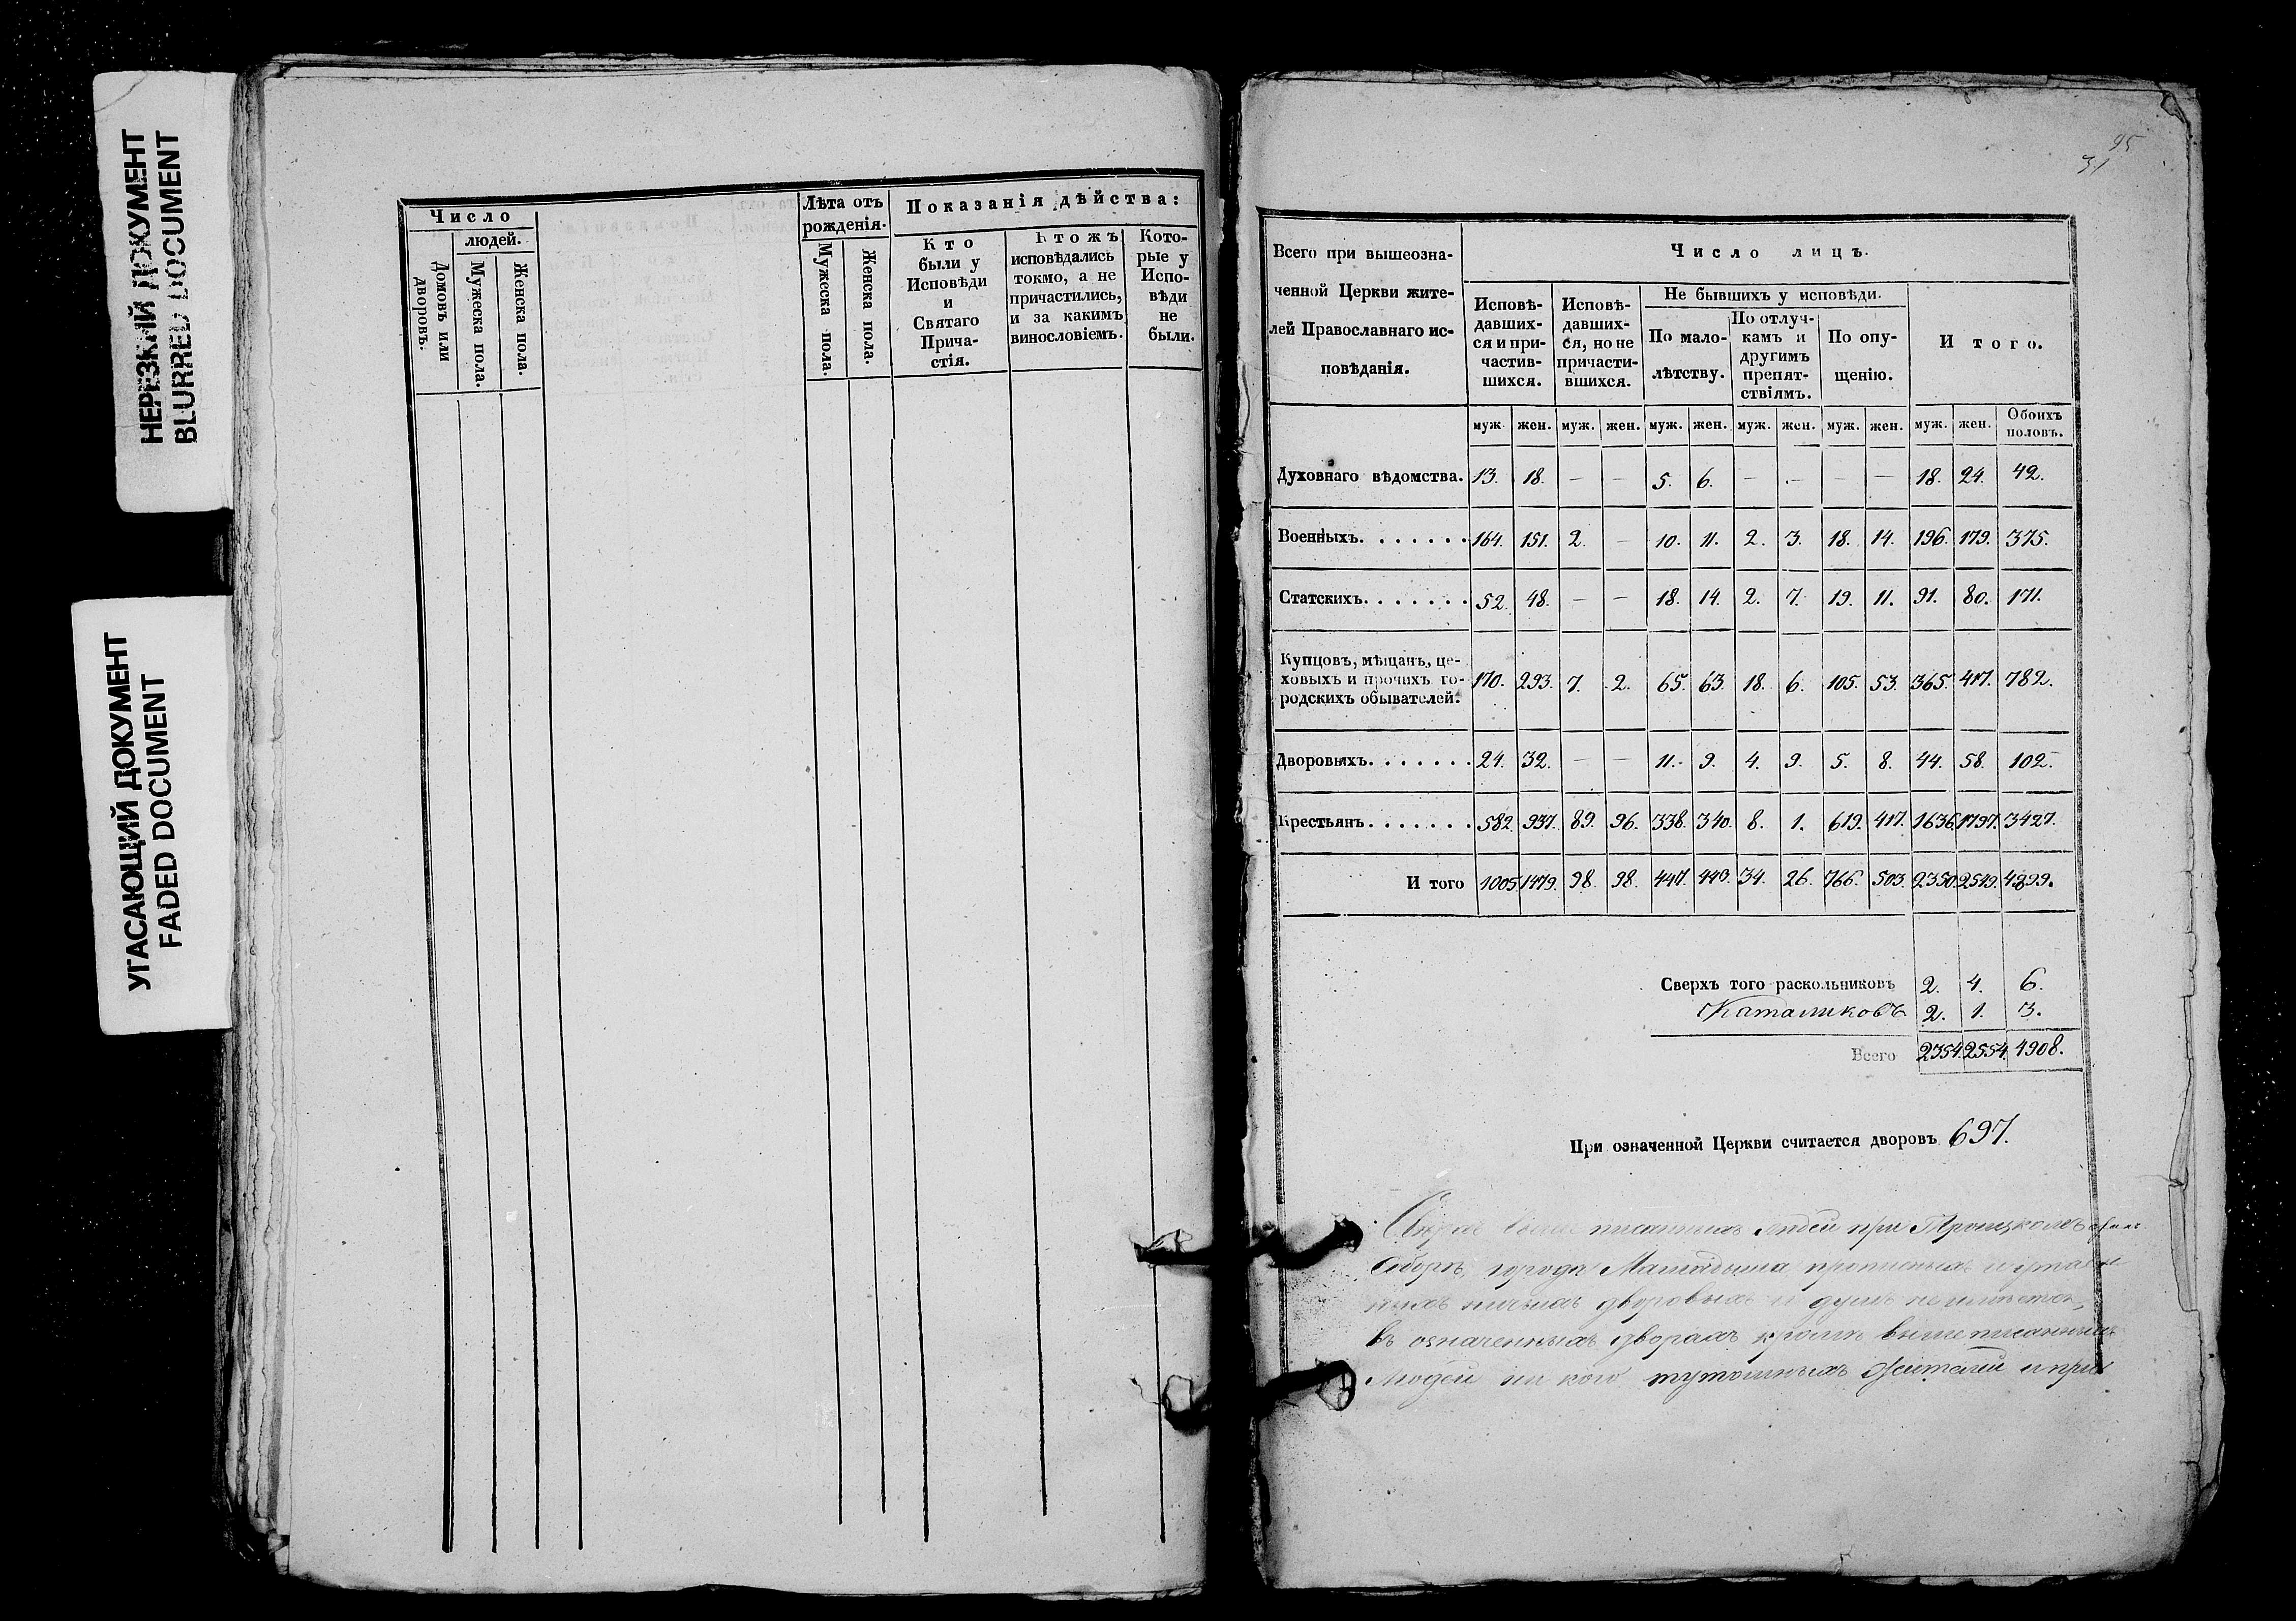 НЕРЕЗКИЙ ДОКУМЕНТ
BLURRED DOCUMENT
УГАСАЮЩИЙ ДОКУМЕНТ
FADED DOCUMENT
Число
людей.
Домовъ или
дворовъ.
Мужеска пола.
Женска пола.
Лѣта отъ
рожденія.
Мужеска пола.
Женска пола.
Показанія дѣйства:
Кто
были у
Исповѣди
и
Святаго
Прича-
стія.
Ктожъ
исповѣдались
токмо, а не
причастились,
и за какимъ
винословіемъ.
Кото-
рые у
Испо-
вѣди
не
были.
95
31
Всего при вышеозна-
ченной Церкви жите-
лей Православнаго ис-
повѣданія.
Число лицъ.
Исповѣ-
давших-
ся и при-
частив-
шихся.
Исповѣ-
давших-
ся, но не
причасти-
вшихся.
Не бывшихъ у исповѣди.
По мало-
лѣтству.
По отлуч-
камъ и
другимъ
препят-
ствіямъ.
По опу-
щенію.
Итого.
муж. жен. муж. жен. муж. жен. муж. жен. муж. жен. муж. жен. Обоихъ половъ.
Духовнаго вѣдомства. 13. 18. — — 5. 6. — — — — 18. 24. 42.
Военныхъ. . . . . . . 164. 151. 2. — 10. 11. 2. 3. 18. 14. 196. 179. 375.
Статскихъ. . . . . . . 52. 48. — — 18. 14. 2. 7. 19. 11. 91. 80. 171.
Купцовъ, мѣщанъ, це-
ховыхъ и прочихъ го-
родскихъ обывателей. 170. 293. 7. 2. 65. 63. 18. 6. 105. 53. 365. 417. 782.
Дворовыхъ. . . . . . . 24. 32. — — 11. 9. 4. 9. 5. 8. 44. 58. 102.
Крестьянъ. . . . . . . 582. 937. 89. 96. 338. 340. 8. 1. 619. 417. 1636. 1797. 3427.
И того 1005. 1479. 98. 98. 447. 443. 34. 26. 766. 503. 2350. 2549. 4899.
Сверхъ того раскольниковъ 2. 4. 6.
Каталиковъ 2. 1. 3.
Всего 2354. 2554. 4908.
При означенной Церкви считается дворовъ 697.
писанныхъ людей при Троицкомъ
Соборѣ, города Мамадыша прописныхъ и утаен
ныхъ ничьихъ дворовыхъ и душъ не имѣется,
въ означенныхъ дворахъ кромѣ вышеписанныхъ
людей ни кого тутошныхъ жителей и при